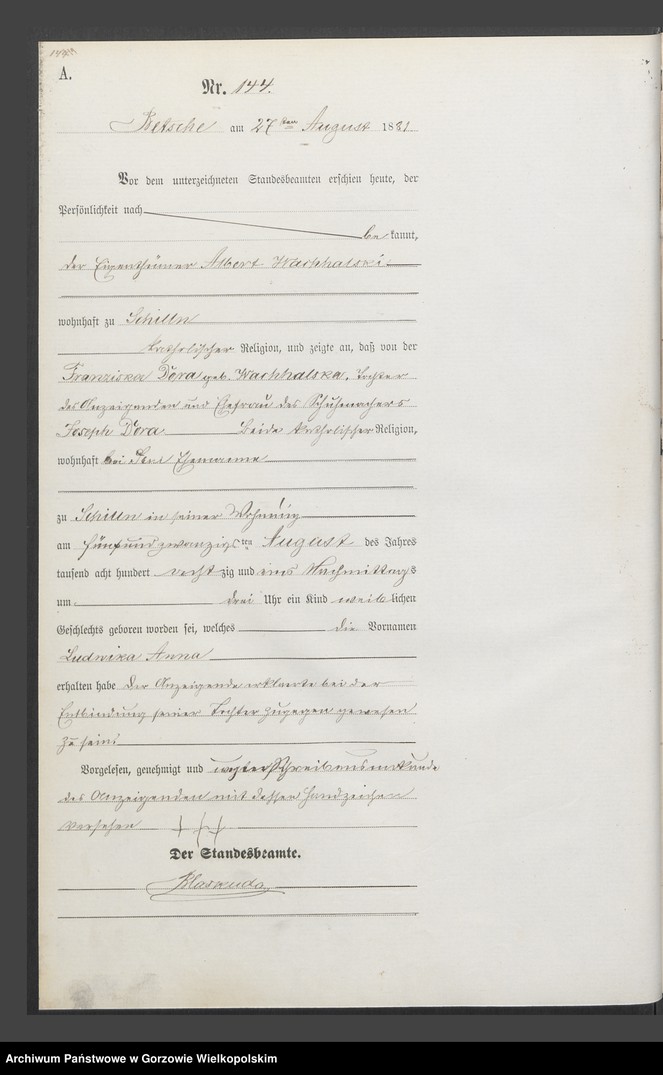 144
A.
Nr. 144.
Betsche am 27ten August 1881.
Vor dem unterzeichneten Standesbeamten erschien heute, der
Persönlichkeit nach
be kannt,
der Eigenthümer Albert Wachhalski
wohnhaft zu Schilln
katholischer Religion, und zeigte an, daß von der
Franziska Dora geb. Wachhalska, Tochter
des Anzeigenden und Ehefrau des Schuhmachers
Joseph Dora beide katholischer Religion,
wohnhaft bei Ehemanne
zu Schilln in seiner Wohnung
am fünfundzwanzigs ten August des Jahres
tausend acht hundert acht zig und eins Nachmittags
um drei Uhr ein Kind weib lichen
Geschlechts geboren worden sei, welches die Vornamen
Ludwika Anna
erhalten habe Der Anzeigende erklaerte bei der
Entbindung seiner Tochter zugegen gewesen
zu sein.
Vorgelesen, genehmigt und wegen Schreibensunkunde
des Anzeigenden mit dessen Handzeichen
versehen +++
Der Standesbeamte.
Archiwum Państwowe w Gorzowie Wielkopolskim